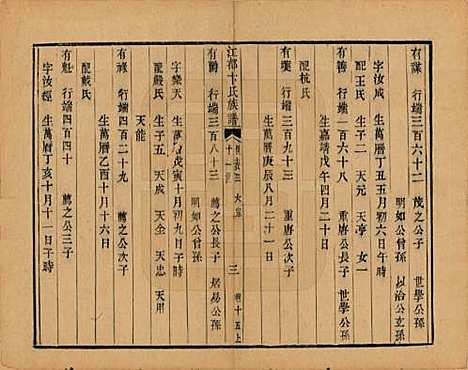 有謀 行端三百六十二 茂之公子 以治公玄孫
字汝成 生萬曆丁丑五月初六日午時
配王氏 生子二 天元 天亭 女一
有善 行端一百六十八 重唐公長子 世學公孫
生嘉靖戊午四月二十日
配杭氏
有漢 行端三百九十三 重唐公次子 世學公孫
生萬曆庚辰八月二十一日
江都卞氏族譜
十一
三
有爵 行端三百八十三 薦之公長子 居易公孫
明如公曾孫
字樂天 生萬曆戊寅十月初九日子時
配嚴氏 生子五 天成 天全 天忠 天用
天能
有祿 行端四百二十九 薦之公次子
生萬曆乙酉十月十六日
配戴氏
有魁 行端四百四十 薦之公三子
字汝經 生萬曆丁亥十月十一日子時